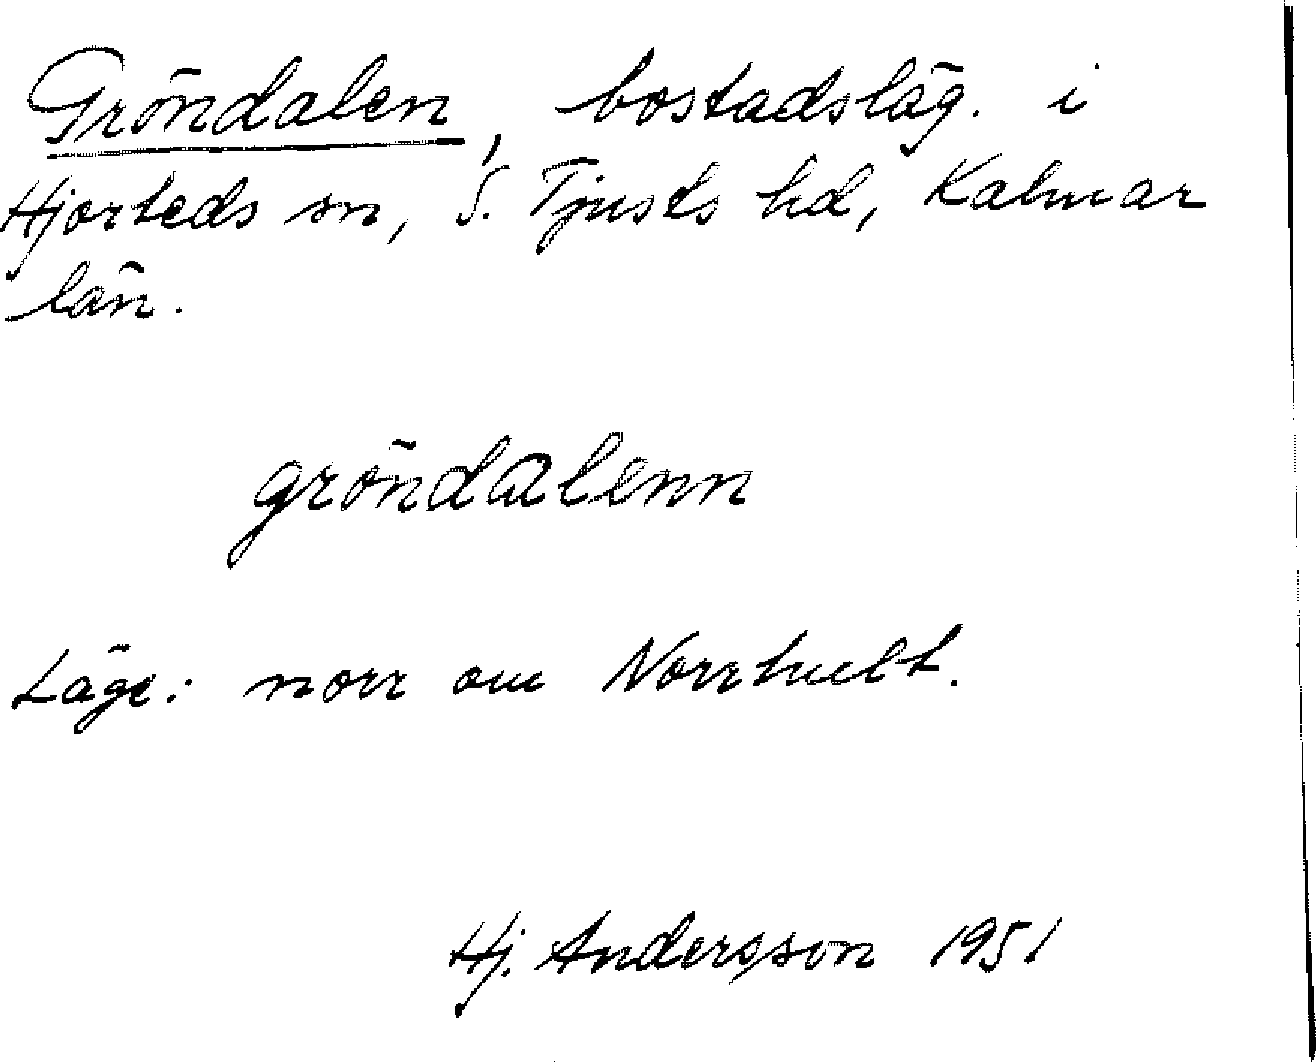 Gröndalen, bostadsläg. i
Hjorteds sn, S. Tjusts hd, Kalmar
län.
gröndalenn
Läge: norr om Norrhult.
Hj. Andersson 1951